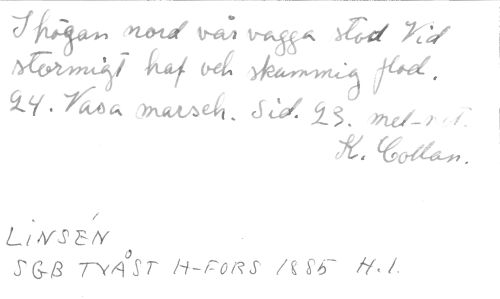 I högan nord vår vagga stod Vid
stormigt haf och skummig flod.
24. Vasa marsch. Sid. 23. mel-
K. Collan.
LiNSÉN
SGB TVÅST H-FORS 1885 H.1.